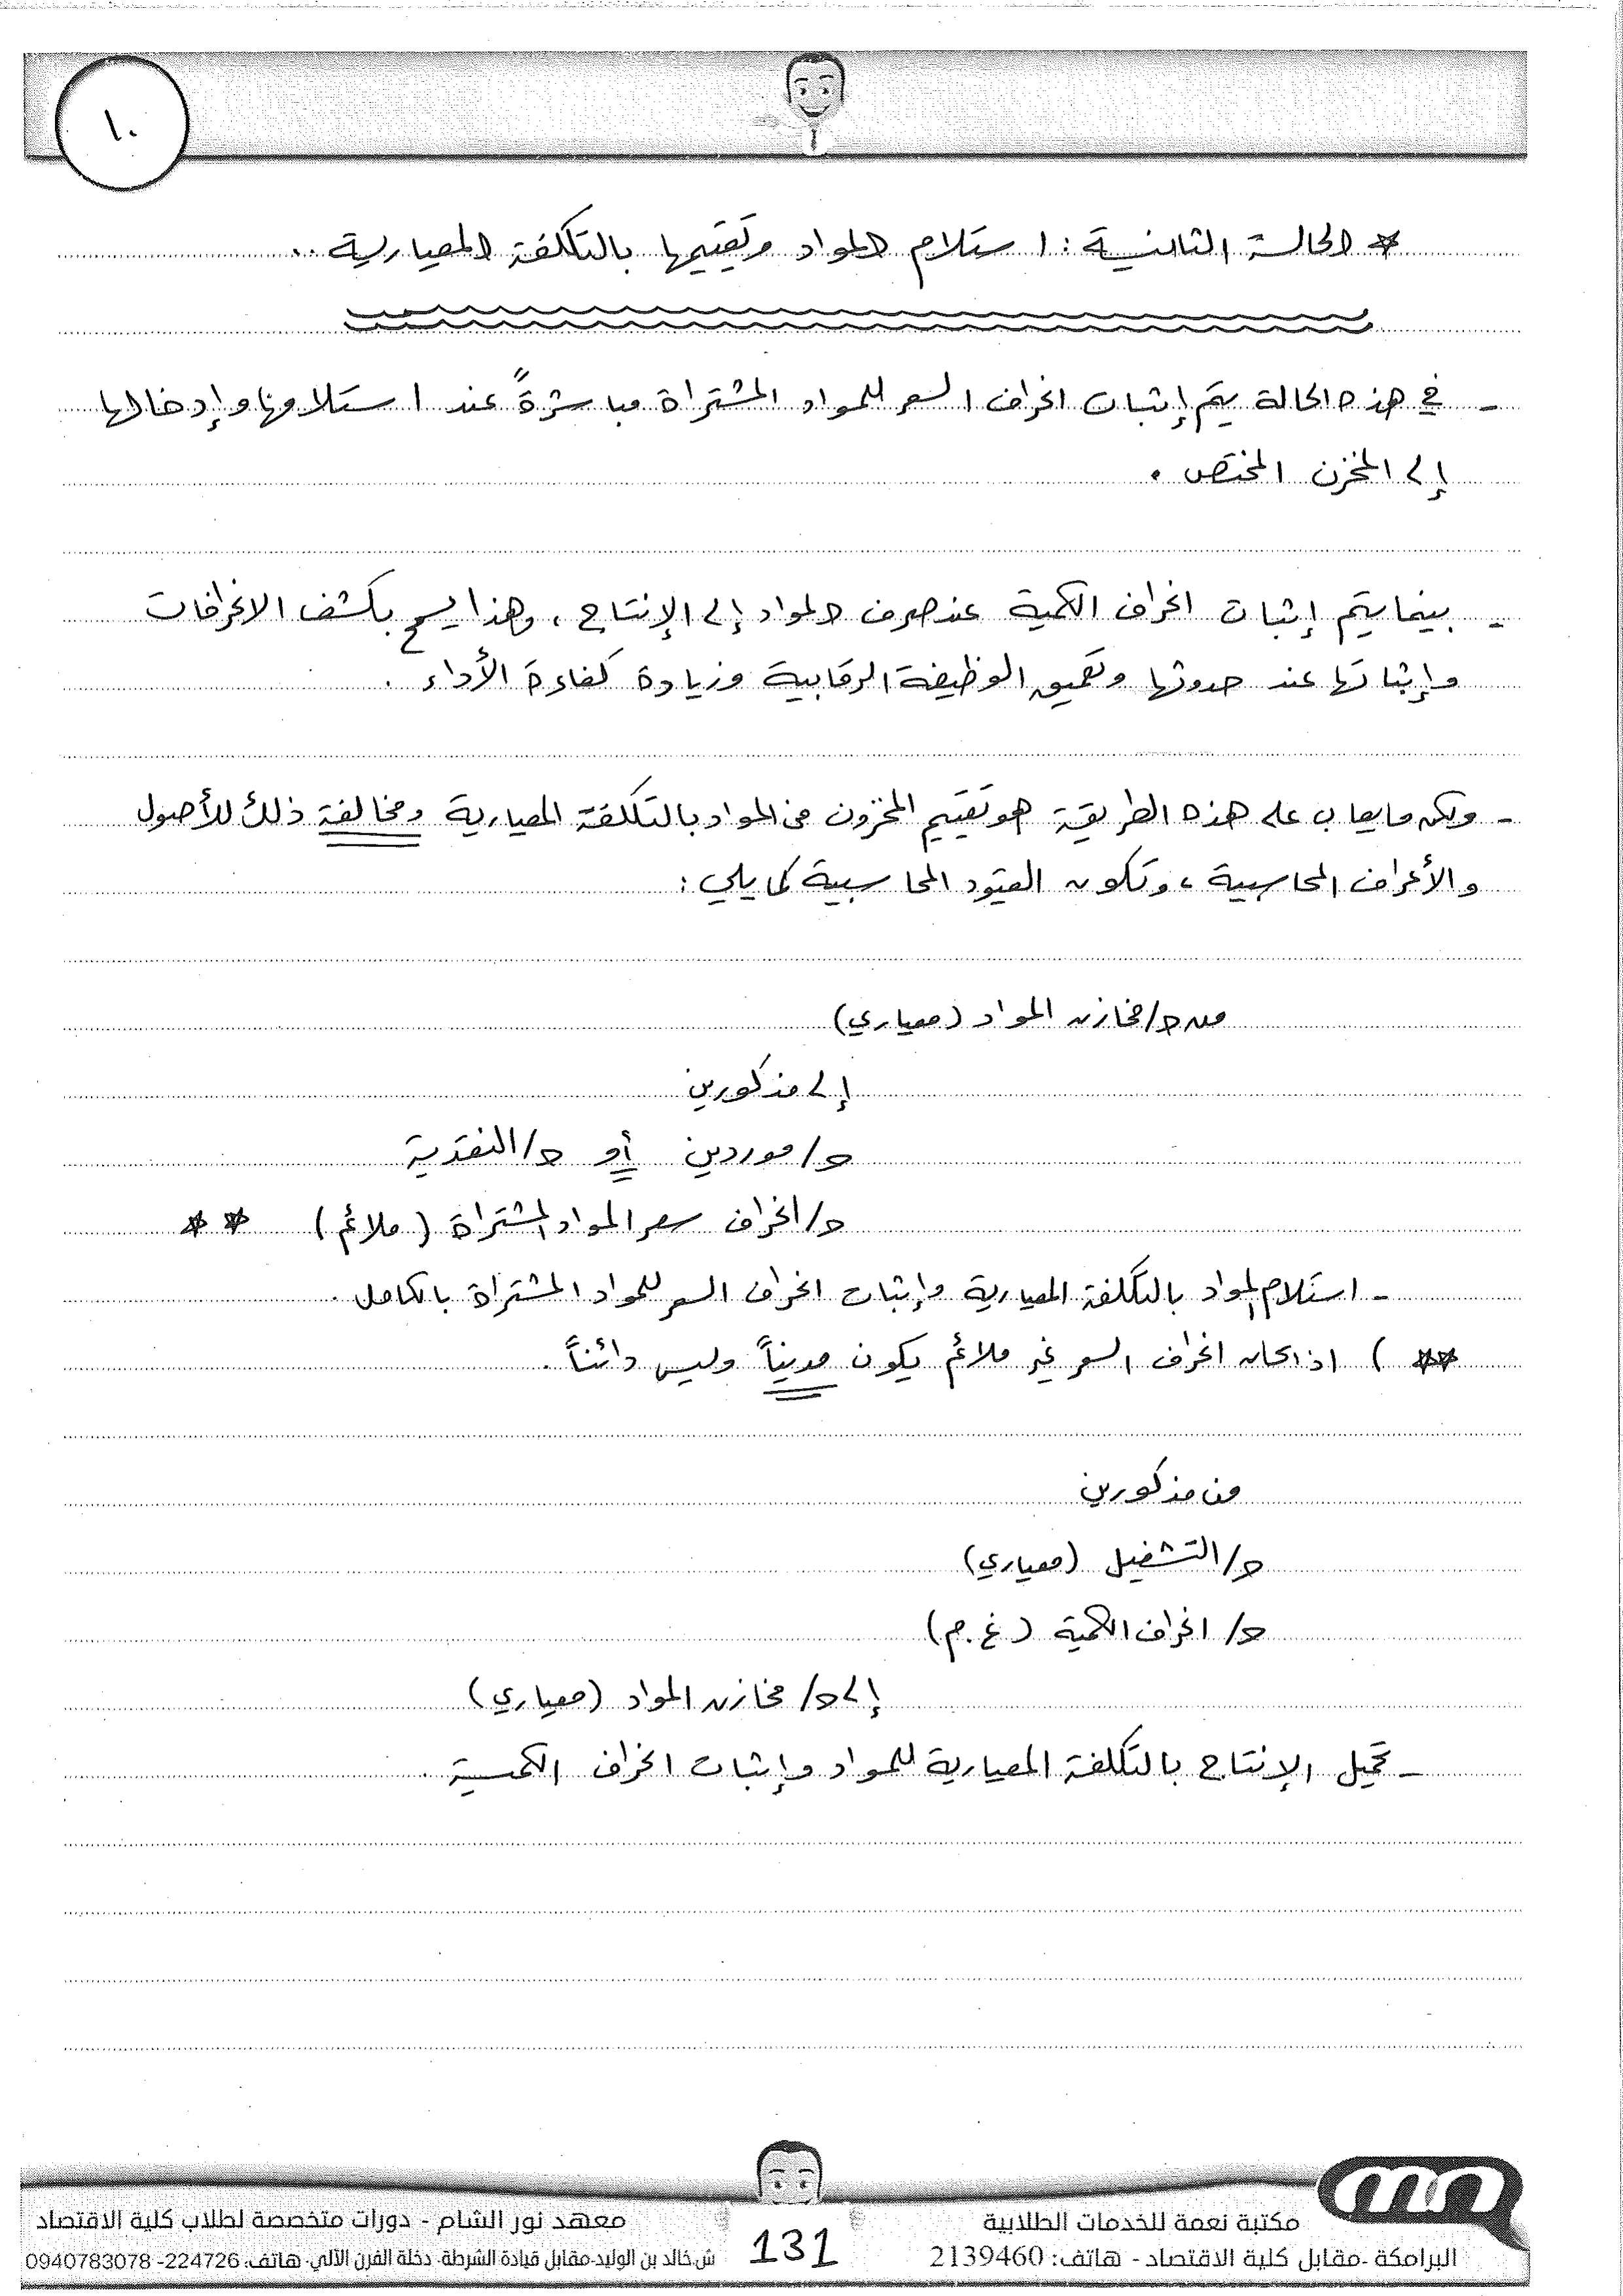 ١٠
* الحالة الثانية: استلام المواد وتقييمها بالتكلفة المعيارية ..
- في هذه الحالة يتم إثبات انحراف السعر للمواد المشتراة مباشرةً عند استلامها وإدخالها
إلى المخزن المختص .
- بينما يتم إثبات انحراف الكمية عند صرف المواد إلى الإنتاج ، وهذا يسمح بكشف الانحرافات
وإثباتها عند حدوثها وتعميق الوظيفة الرقابية وزيادة كفاءة الأداء .
- ولكن ما يعاب على هذه الطريقة هو تقييم المخزون من المواد بالتكلفة المعيارية ومخالفة ذلك للأصول
والأعراف المحاسبية ، وتكون القيود المحاسبية كما يلي :
من ح/مخازن المواد (معياري)
إلى مذكورين
ح/ موردين أو ح/ النقدية
ح/ انحراف سعر المواد المشتراة (ملائم) **
- استلام المواد بالتكلفة المعيارية وإثبات انحراف السعر للمواد المشتراة بالكامل .
** ) اذا كان انحراف السعر غير ملائم يكون مديناً وليس دائناً .
من مذكورين
ح/ التشغيل (معياري)
ح/ انحراف الكمية (غ.م)
إلى ح/ مخازن المواد (معياري)
- تحميل الإنتاج بالتكلفة المعيارية للمواد وإثبات انحراف الكمية .
مكتبة نعمة للخدمات الطلابية
البرامكة -مقابل كلية الاقتصاد - هاتف: 2139460
131
معهد نور الشام - دورات متخصصة لطلاب كلية الاقتصاد
ش.خالد بن الوليد-مقابل قيادة الشرطة- دخلة الفرن الآلي- هاتف: 224726- 0940783078